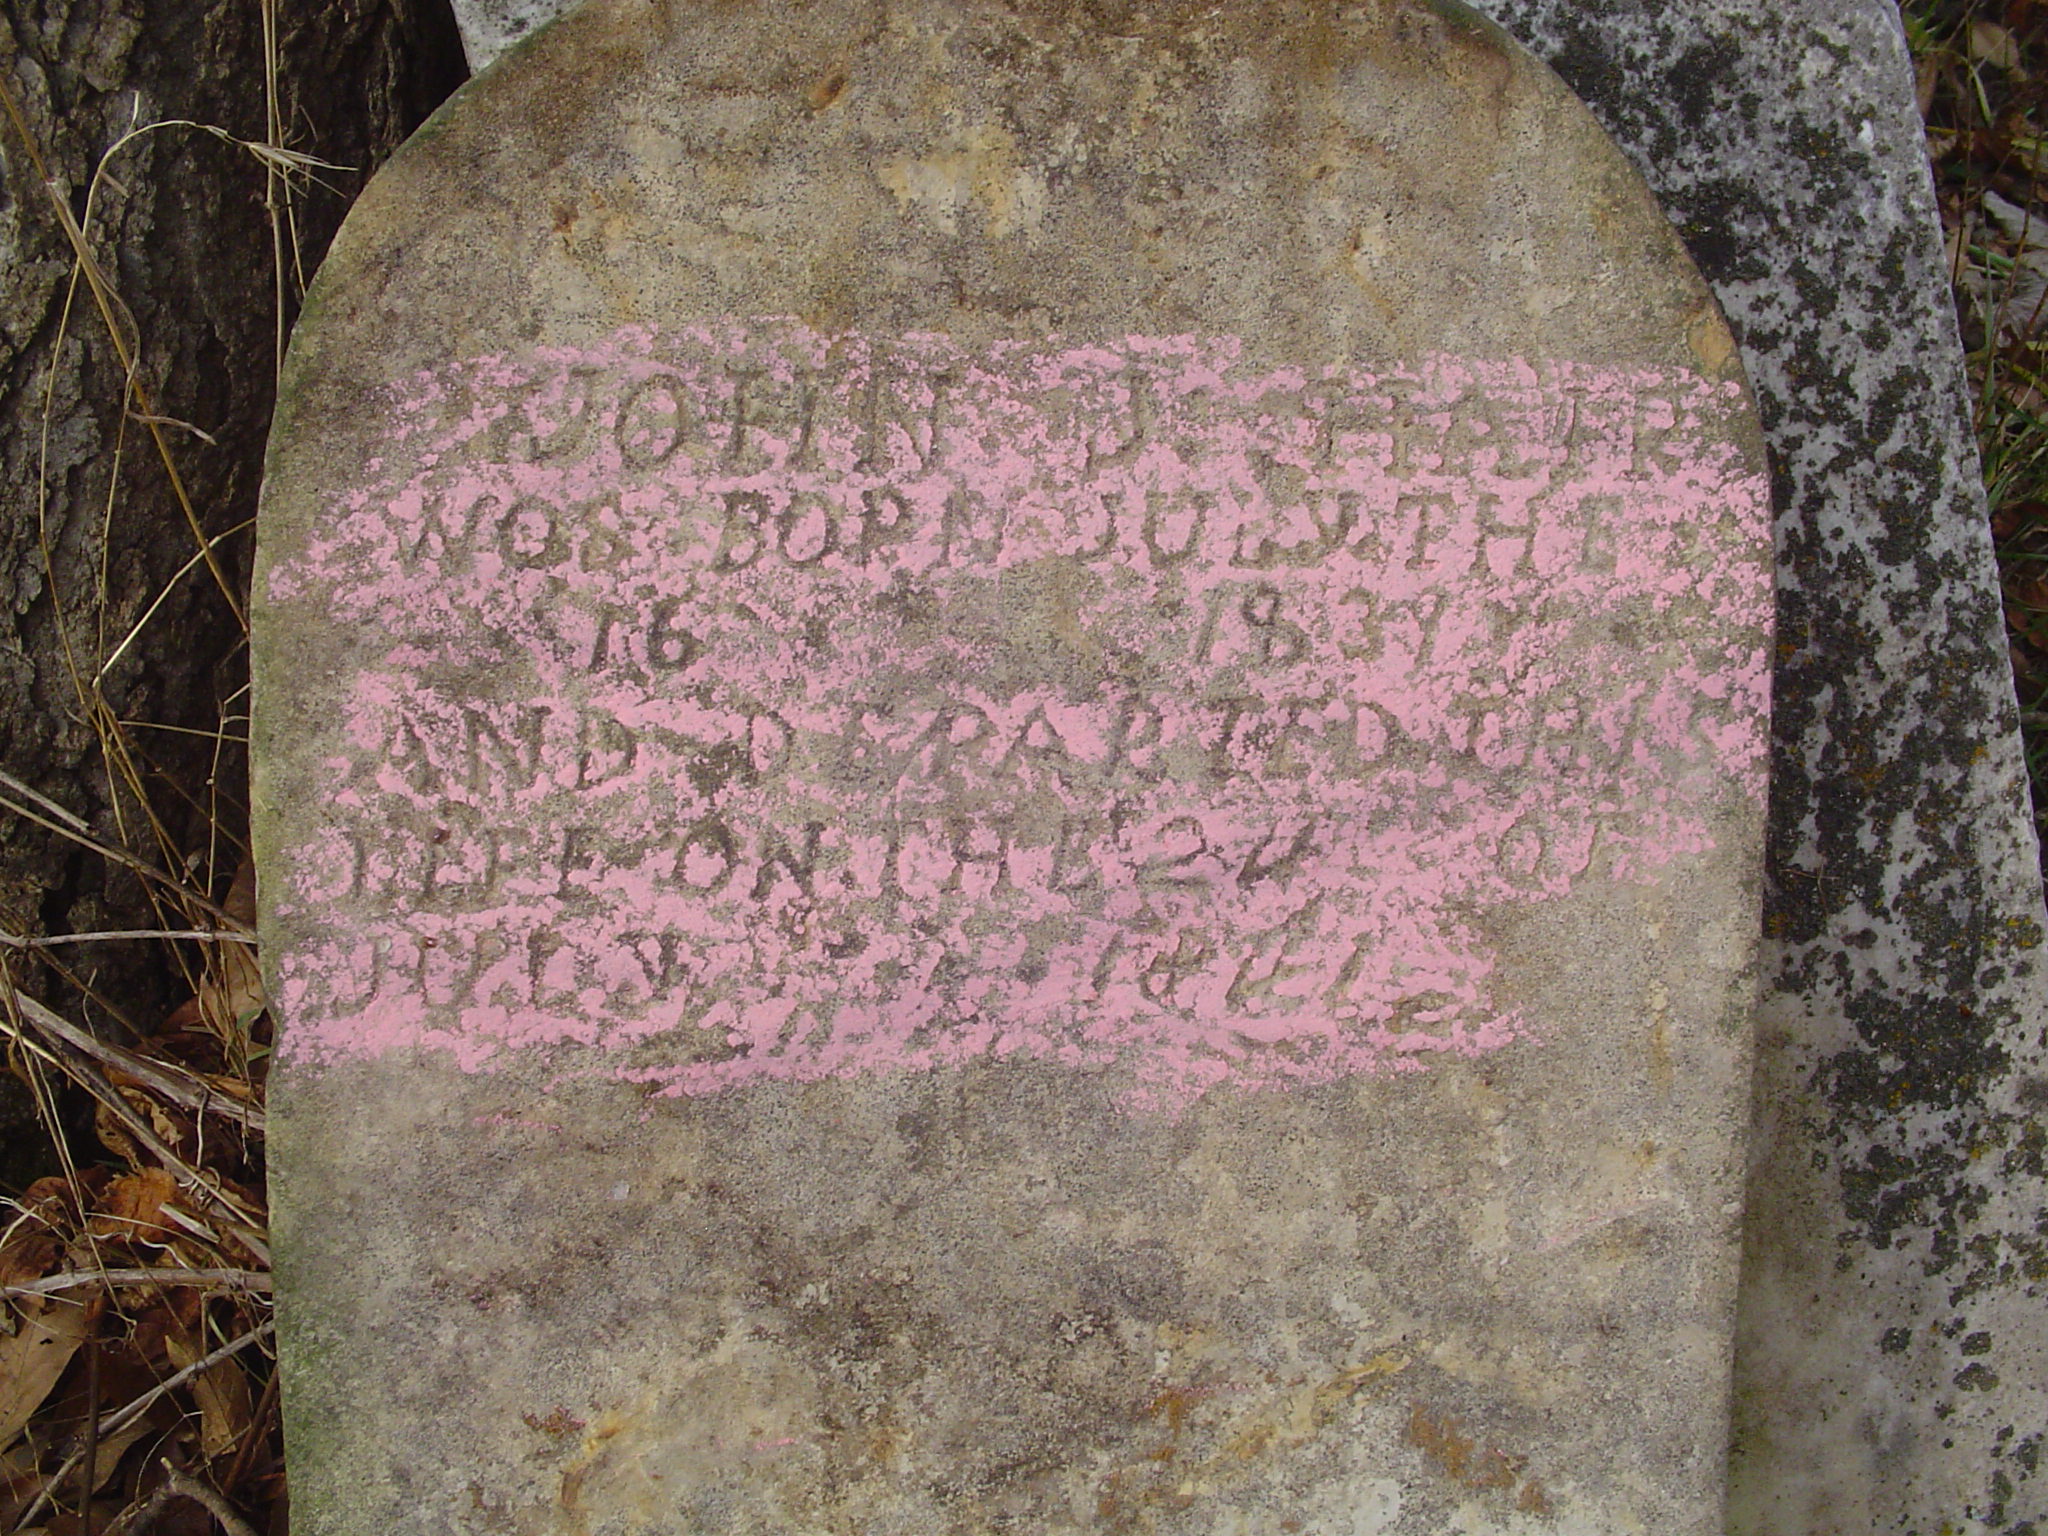 JOHN J HAIR
WOS BORN JULY THE
16 1831
AND DEPARTED THIS
LIFE ON THE 2 OF
JULY 18